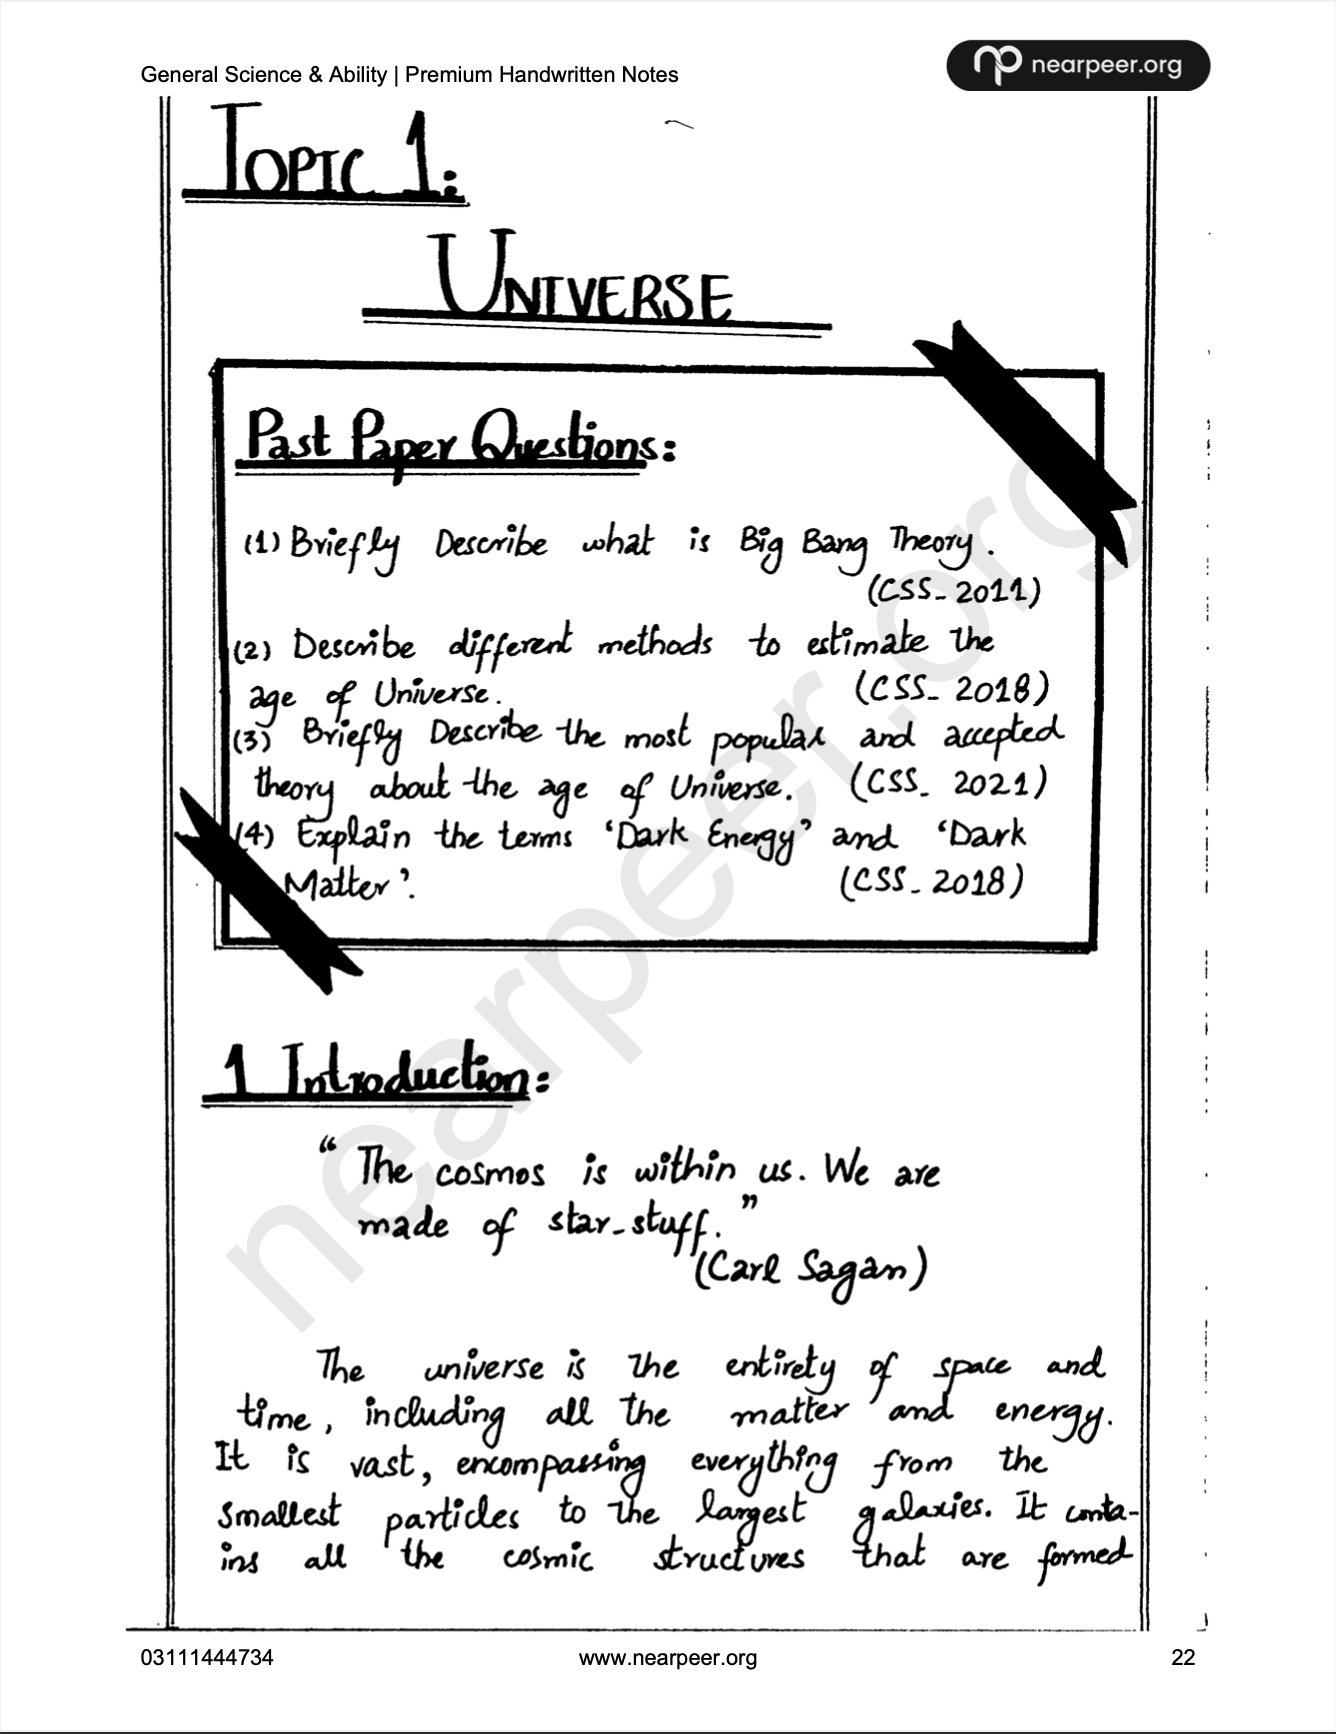 General Science & Ability | Premium Handwritten Notes
nearpeer.org
TOPIC 1:
UNIVERSE
Past Paper Questions:
(1) Briefly Describe what is Big Bang Theory.
(CSS- 2011)
(2) Describe different methods to estimate the
age of Universe. (CSS- 2018)
(3) Briefly Describe the most popular and accepted
theory about the age of Universe. (CSS- 2021)
(4) Explain the terms 'Dark Energy' and 'Dark
Matter'. (CSS- 2018)
1 Introduction:
" The cosmos is within us. We are
made of star-stuff. "
(Carl Sagan)
The universe is the entirety of space and
time, including all the matter and energy.
It is vast, encompassing everything from the
smallest particles to the largest galaxies. It conta-
ins all the cosmic structures that are formed
nearpeer.org
03111444734 www.nearpeer.org 22